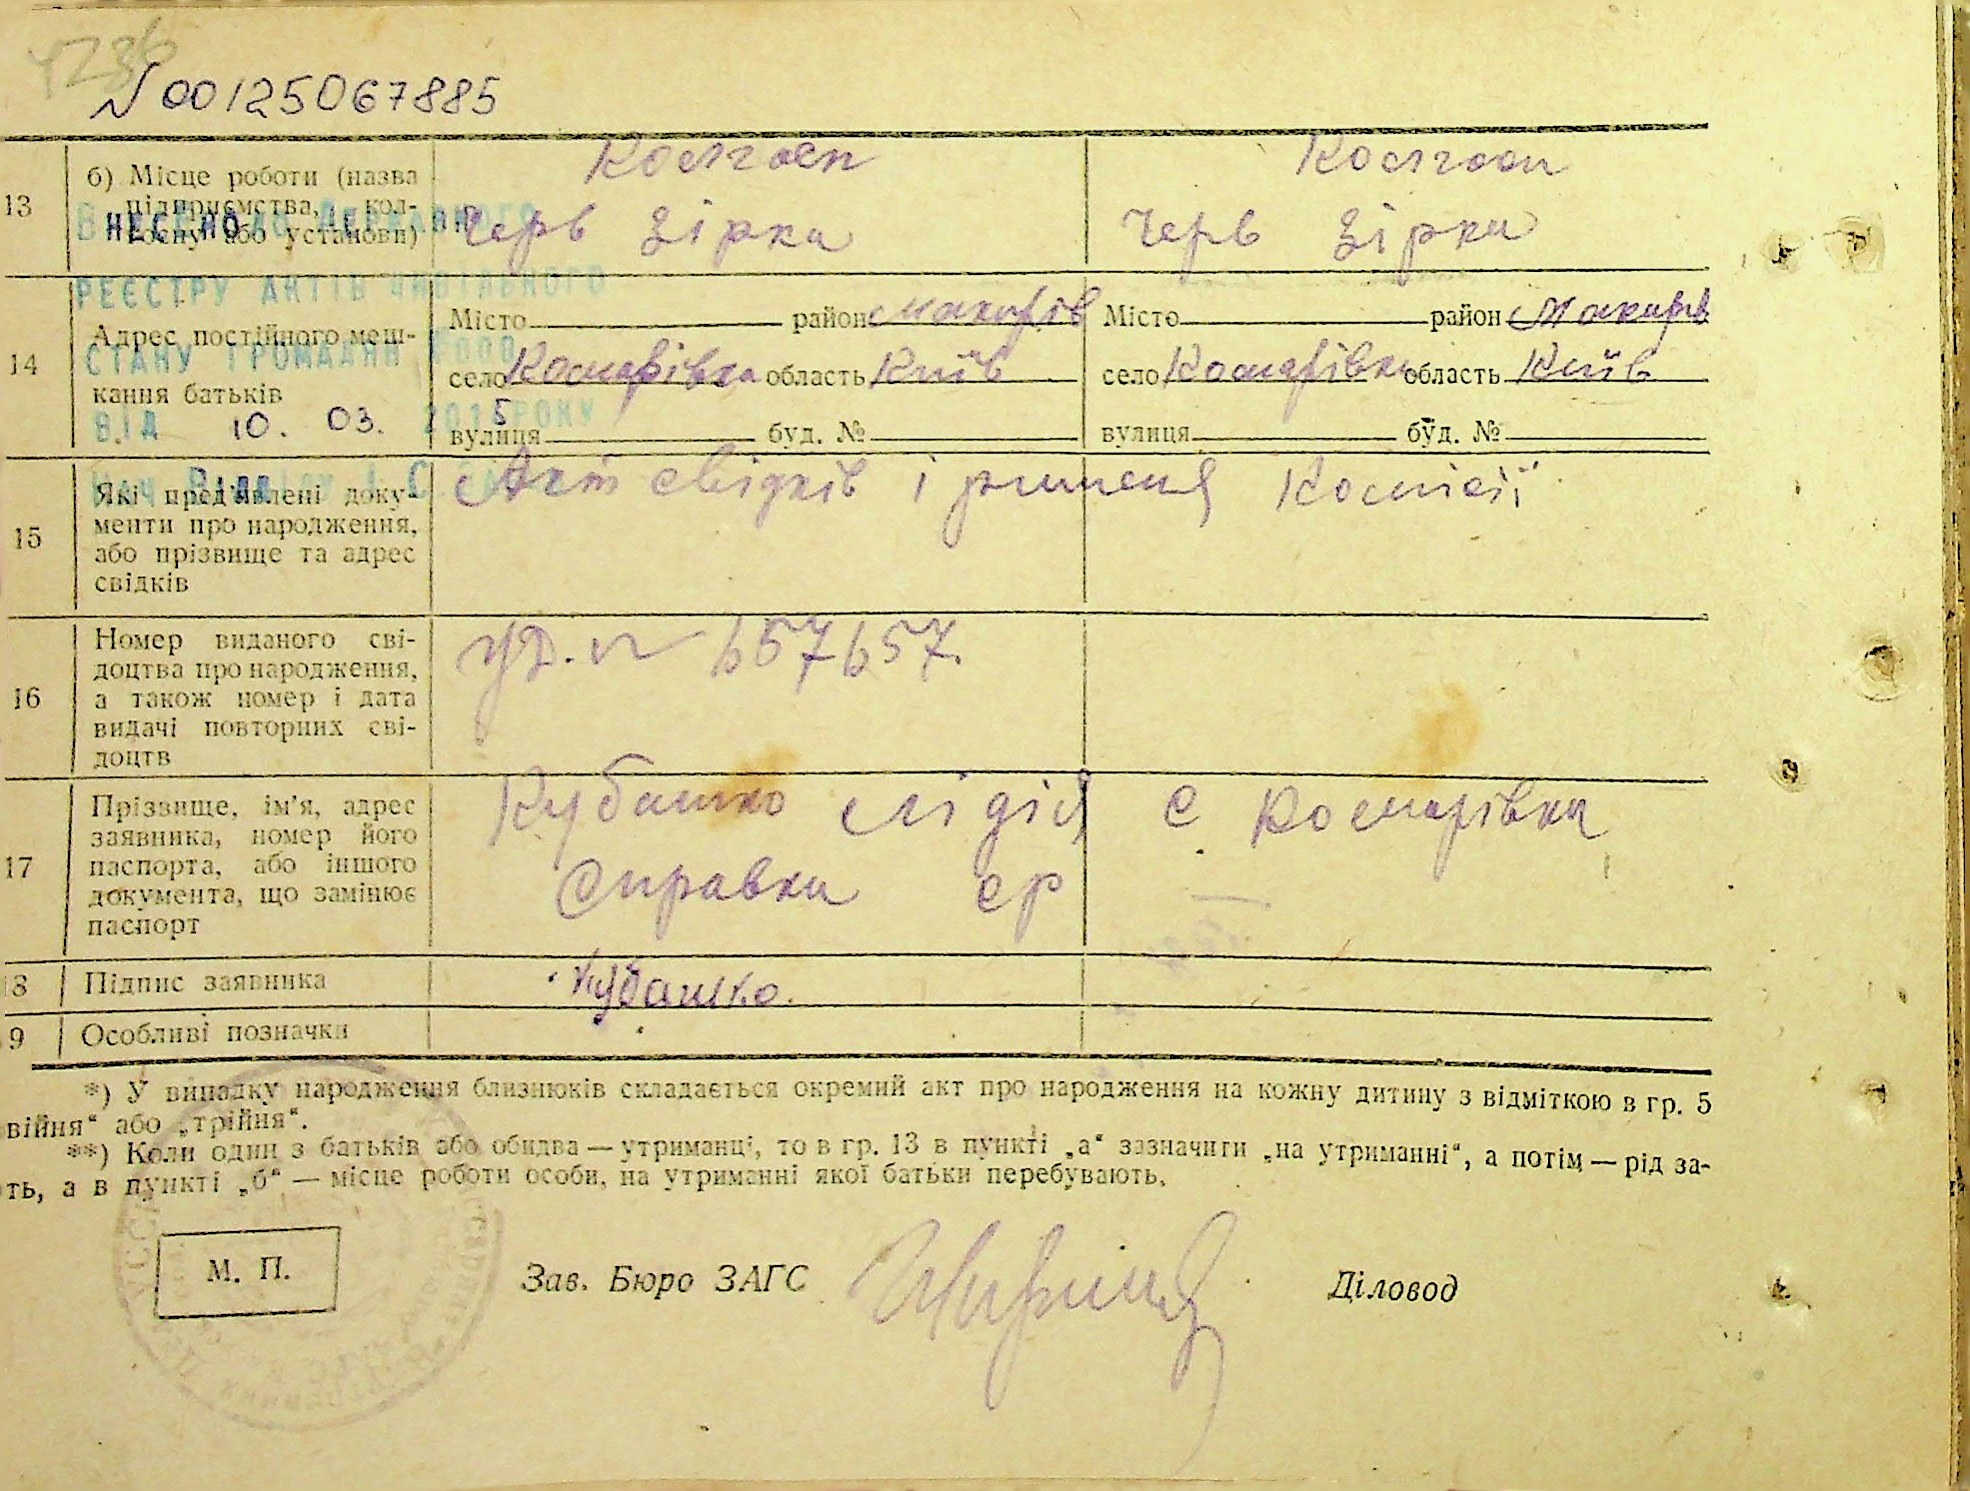 N 00125067885
13 б) Місце роботи (назва підприємства, кол-
госпу або установи)
Колгосп Колгосп
Черв Зірка Черв Зірка
ВНЕСЕНО ДО ДЕРЖАВНОГО
РЕЄСТРУ АКТІВ ЦИВІЛЬНОГО
СТАНУ ГРОМАДЯН
ВІД 10. 03. 2015 РОКУ
14 Адрес постійного меш-
кання батьків
Місто район Макарів Місто район Макарів
село Комарівка область Київ село Комарівка область Київ
вулиця буд. № вулиця буд. №
15 Які пред'явлені доку-
менти про народження,
або прізвище та адрес
свідків
Акт свідків і рішення Комісії
16 Номер виданого сві-
доцтва про народження,
а також номер і дата
видачі повторних сві-
доцтв
657657.
17 Прізвище, ім'я, адрес
заявника, номер його
паспорта, або іншого
документа, що замінює
паспорт
Кубашко Лідія с Комарівка
Справка ср
18 Підпис заявника Кубашко.
19 Особливі позначки
*) У випадку народження близнюків складається окремий акт про народження на кожну дитину з відміткою в гр. 5
війня“ або „трійня“.
**) Коли один з батьків або обидва — утриманці, то в гр. 13 в пункті „а“ зазначити „на утриманні“, а потім — рід за-
ть, а в пункті „б“ — місце роботи особи, на утриманні якої батьки перебувають.
М. П. Зав. Бюро ЗАГС Діловод